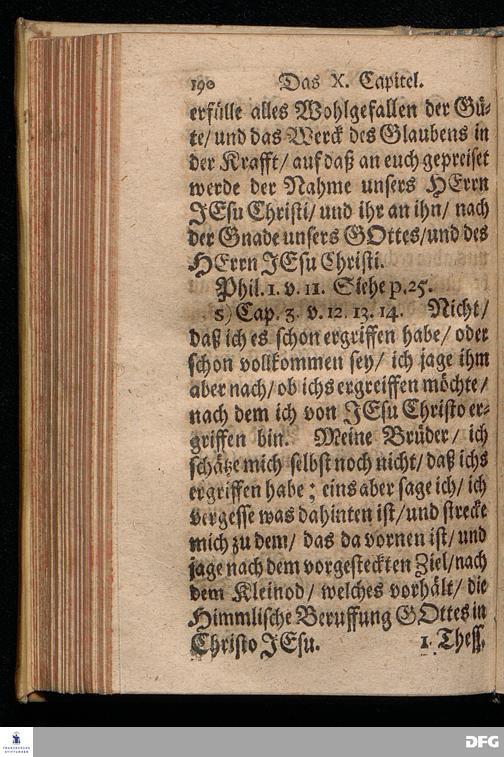 190 Das X. Capitel.
erfülle alles Wohlgefallen der Gü-
te/ und das Werck des Glaubens in
der Krafft/ auf daß an euch gepreiset
werde der Nahme unsers HErrn
JEsu Christi/ und ihr an ihn/ nach
der Gnade unsers GOttes/ und des
HErrn JEsu Christi.
Phil. 1. v. 11. Siehe p. 25.
s) Cap. 3. v. 12. 13. 14. Nicht/
daß ich es schon ergriffen habe/ oder
schon vollkommen sey/ ich jage ihm
aber nach/ ob ichs ergreiffen möchte/
nach dem ich von JEsu Christo er-
griffen bin. Meine Brüder/ ich
schätze mich selbst noch nicht/ daß ichs
ergriffen habe; eins aber sage ich/ ich
vergesse was dahinten ist/ und strecke
mich zu dem/ das da vornen ist/ und
jage nach dem vorgesteckten Ziel/ nach
dem Kleinod/ welches vorhält/ die
Himmlische Beruffung GOttes in
Christo JEsu. 1. Thess.
FRANCKESCHE STIFTUNGEN
DFG